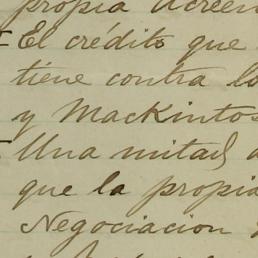 propia Acreen
El crédito que
tiene contra lo
y Mackintos
Una mitad d
que la propia
Negociacion